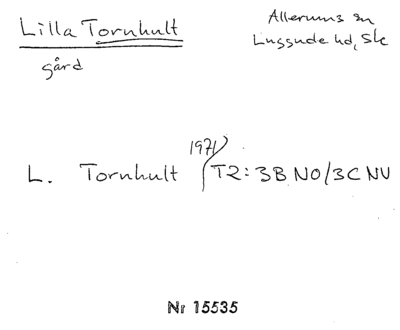 Lilla Tornhult
gård
Allerums sn
Luggude hd, Sk
L. Tornhult 1971 T2: 3B NO/3C NV
Nr 15535